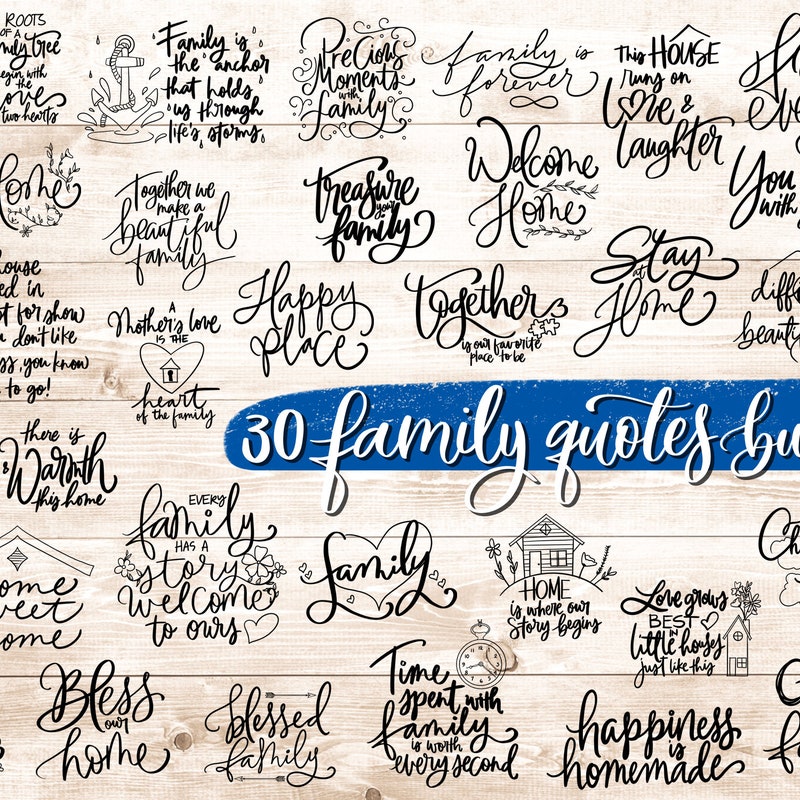 ROOTS
OF A
family tree
begin with the
love
two hearts
Family is
the anchor
that holds
us through
life's storms
Precious
Moments
with
family
family is
forever
This HOUSE
runs on
Love &
laughter
Home
Together we
make a
beautiful
family
treasure
your
family
Welcome
Home
You
with
house
in
for show
don't like
you know
to go!
A
Mother's love
IS THE
heart
of the family
Happy
place
together
is our favorite
place to be
Stay
at
Home
there is
Warmth
this home
30 family quotes bu
EVERY
family
HAS A
story
Welcome
to ours
family
HOME
is where our
Story begins
Love grows
BEST
in
little houses
just like this
Bless
our
home
blessed
family
Time
spent with
family
is worth
every second
happiness
is
homemade